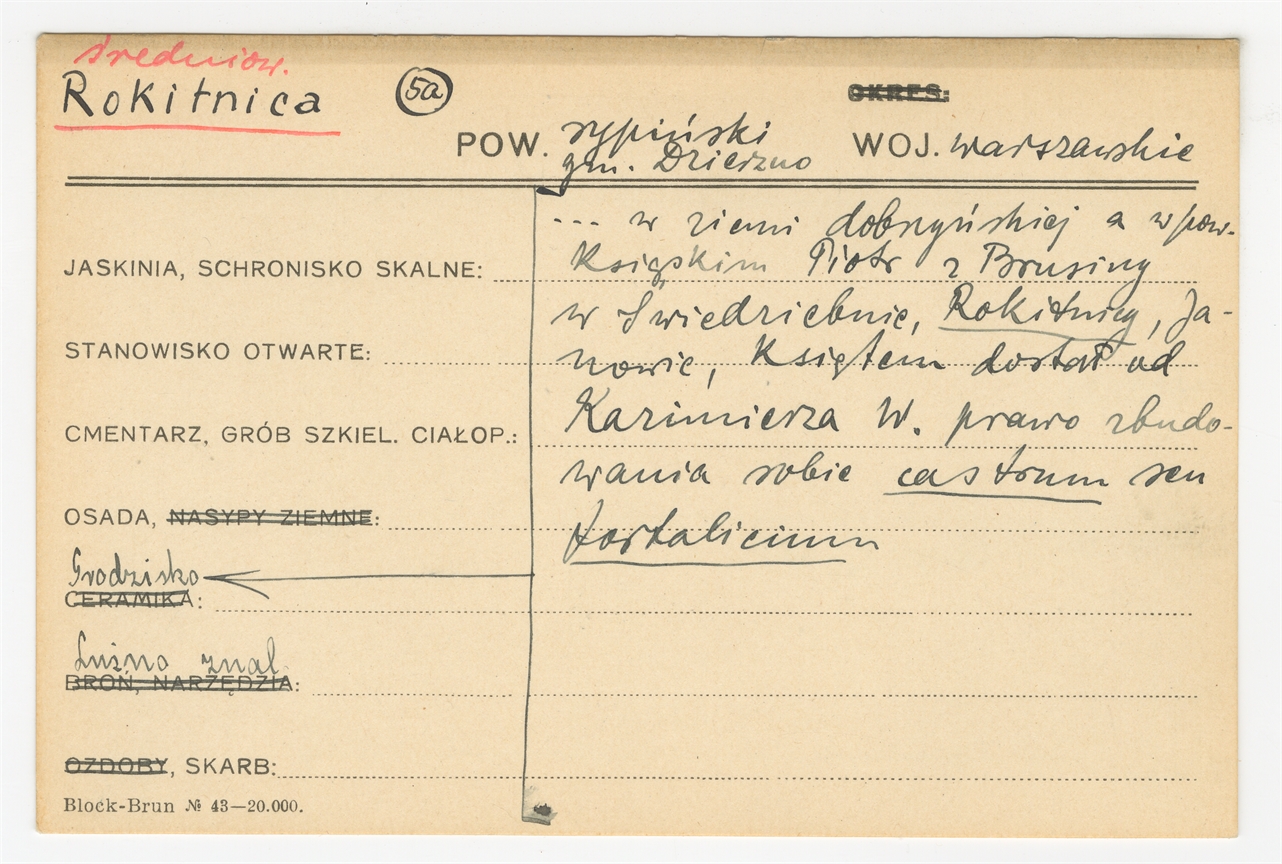 średniow.
Rokitnica 5a
OKRES:
POW. rypiński WOJ. warszawskie
gm. Dzierzno
... w ziemi dobrzyńskiej a w pow.
JASKINIA, SCHRONISKO SKALNE: Książskim Piotr z Brusiny
w Świedziebnie, Rokitnicy, Ja-
STANOWISKO OTWARTE: nowie, Księtem dostał od
CMENTARZ, GRÓB SZKIEL. CIAŁOP.: Kazimierza W. prawo zbudo-
wania sobie castrum seu
OSADA, NASYPY ZIEMNE: fortalicium
Grodzisko
CERAMIKA:
Luźno znal.
BROŃ, NARZĘDZIA:
OZDOBY, SKARB:
Block-Brun № 43—20.000.